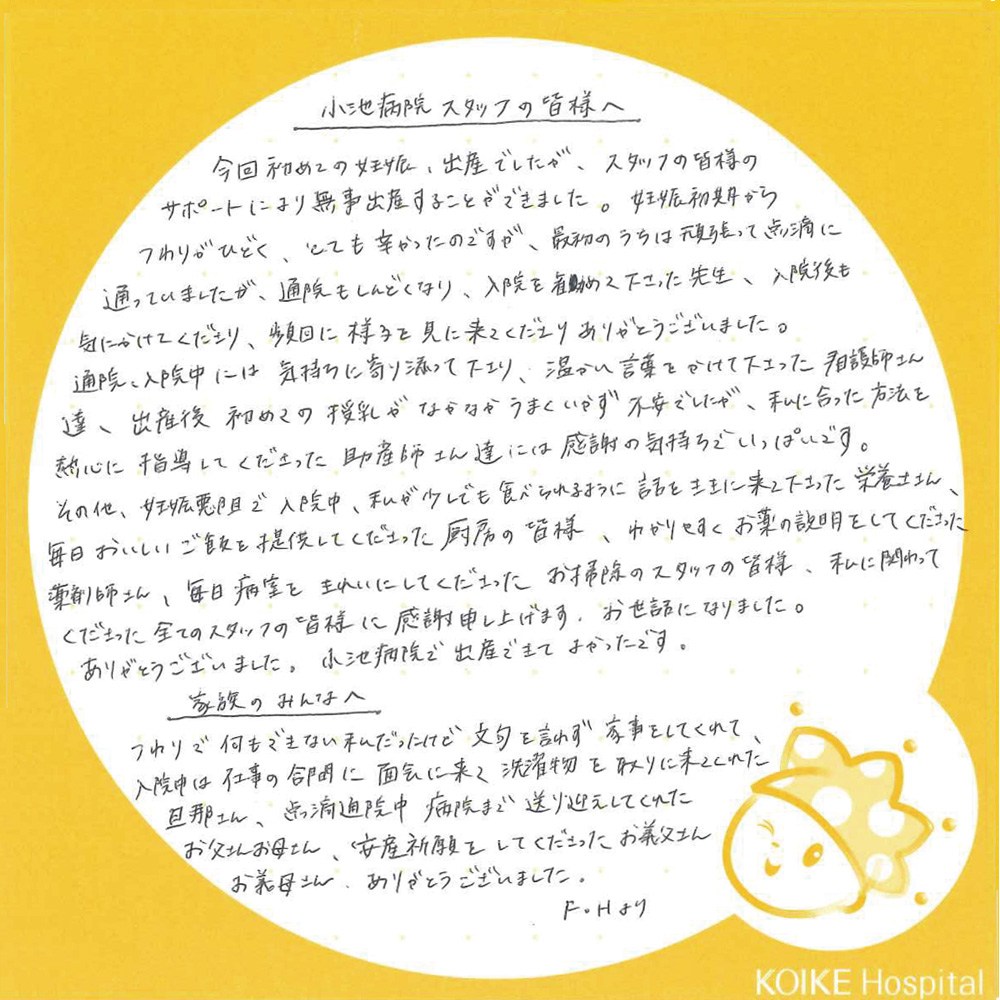 小池病院 スタッフの皆様へ
今回初めての妊娠、出産でしたが、スタッフの皆様の
サポートにより無事出産することができました。妊娠初期から
つわりがひどく、とても辛かったのですが、最初のうちは頑張って点滴に
通っていましたが、通院もしんどくなり、入院を勧めて下さった先生、入院後も
気にかけてくださり、頻回に様子を見に来てくださりありがとうございました。
通院、入院中には気持ちに寄り添って下さり、温かい言葉をかけて下さった看護師さん
達、出産後初めての授乳がなかなかうまくいかず不安でしたが、私に合った方法を
熱心に指導してくださった助産師さん達には感謝の気持ちでいっぱいです。
その他、妊娠悪阻で入院中、私が少しでも食べられるように話をききに来て下さった栄養士さん、
毎日おいしいご飯を提供してくださった厨房の皆様、わかりやすくお薬の説明をしてくださった
薬剤師さん、毎日病室をきれいにしてくださったお掃除のスタッフの皆様、私に関わって
くださった全てのスタッフの皆様に感謝申し上げます。お世話になりました。
ありがとうございました。小池病院で出産できてよかったです。
家族のみんなへ
つわりで何もできない私だったけど文句を言わず家事をしてくれて、
入院中は仕事の合間に面会に来て洗濯物を取りに来てくれた
旦那さん、点滴通院中病院まで送り迎えしてくれた
お父さんお母さん、安産祈願をしてくださったお義父さん
お義母さん、ありがとうございました。
F.Hより
KOIKE Hospital